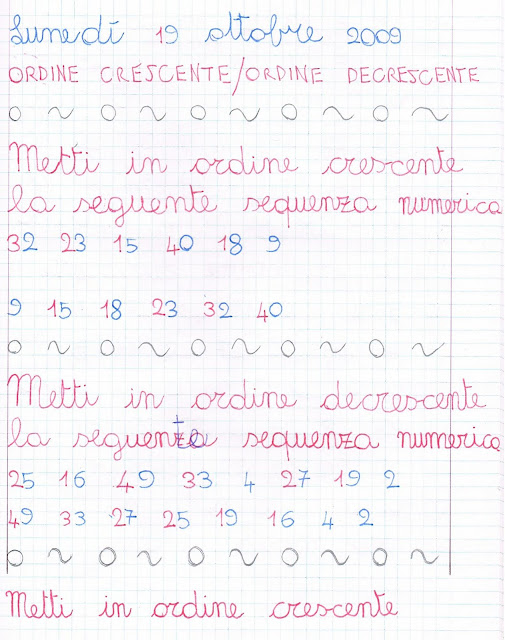 Lunedí 19 ottobre 2009
ORDINE CRESCENTE/ORDINE DECRESCENTE
Metti in ordine crescente
la seguente sequenza numerica
32 23 15 40 18 9
9 15 18 23 32 40
Metti in ordine decrescente
la seguente sequenza numerica
25 16 49 33 4 27 19 2
49 33 27 25 19 16 4 2
Metti in ordine crescente